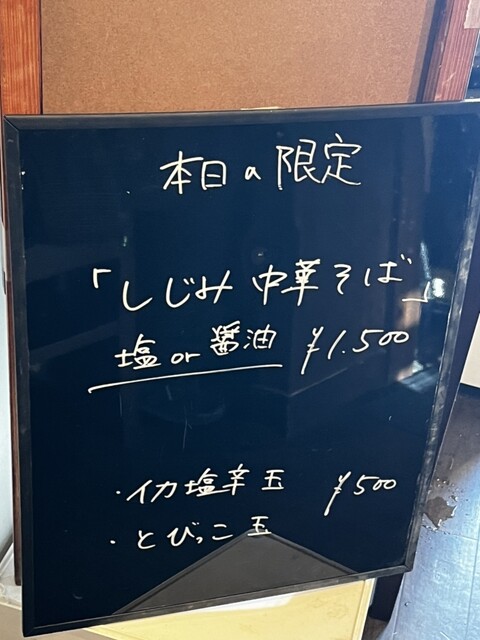 本日の限定
「しじみ中華そば」
塩or醤油 ¥1.500
・イカ塩辛玉 ¥500
・とびっこ玉